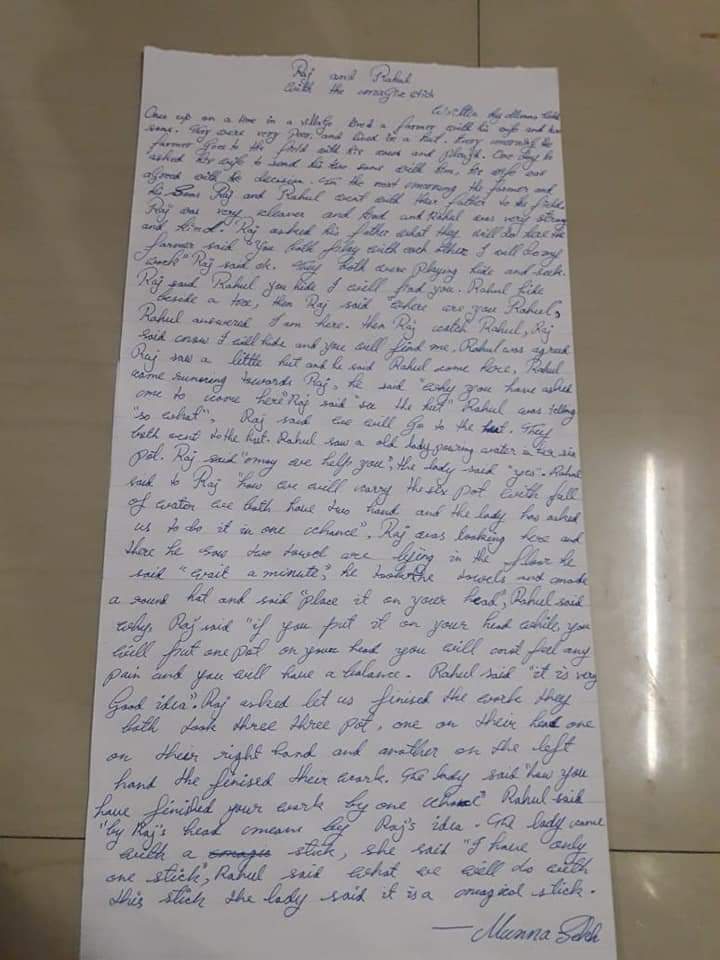 Raj and Rahul
with the magic stick
Written by Munna Sekh
Once up on a time in a village lived a farmer with his wife and two
sons. They were very Poor and lived in a hut. Every morning the
farmer goes to the field with his and plough. One day he
asked his wife to send his two sons with him, his wife was
agreed with his decision. In the next morning the farmer and
his sons Raj and Rahul went with their father to the fields
Raj was very cleaver and kind and Rahul was very strong
and kind. Raj asked his father what they will do here the
farmer said "You both play with each other I will do my
work" Raj said ok. They both were playing hide and seek.
Raj said Rahul you hide I will find you. Rahul hide
beside a tree, then Raj said "where are you Rahul",
Rahul answered I am here. then Raj watch Rahul, Raj
said now I will hide and you will find me. Rahul was agreed
Raj saw a little hut and he said Rahul come here, Rahul
come running towards Raj, he said "why you have asked
me to come here" Raj said "see the hut" Rahul was telling
"so what", Raj said we will Go to the hut. They
both went to the hut. Rahul saw a old lady pouring water in her six
pot. Raj said "may we help you", the lady said "yes". Rahul
said to Raj "how we will carry the six pot with full
of water we both have two hand and the lady has asked
us to do it in one chance". Raj was looking here and
there he saw two towel are lying in the floor he
said "wait a minute", he took the towels and made
a round hat and said "place it on your head", Rahul said
why, Raj said "if you put it on your head while you
will put one pot on your head you will not feel any
pain and you will have a balance. Rahul said "it is very
Good idea". Raj asked let us finised the work they
both took three three pot, one on their head one
on their right hand and another on the left
hand the finised their work. The lady said "how you
have finished your work by one chance" Rahul said
"by Raj's head means by Raj's idea. The lady came
with a magic stick, she said "I have only
one stick", Rahul said what we will do with
this stick the lady said it is a magical stick.
— Munna Sekh